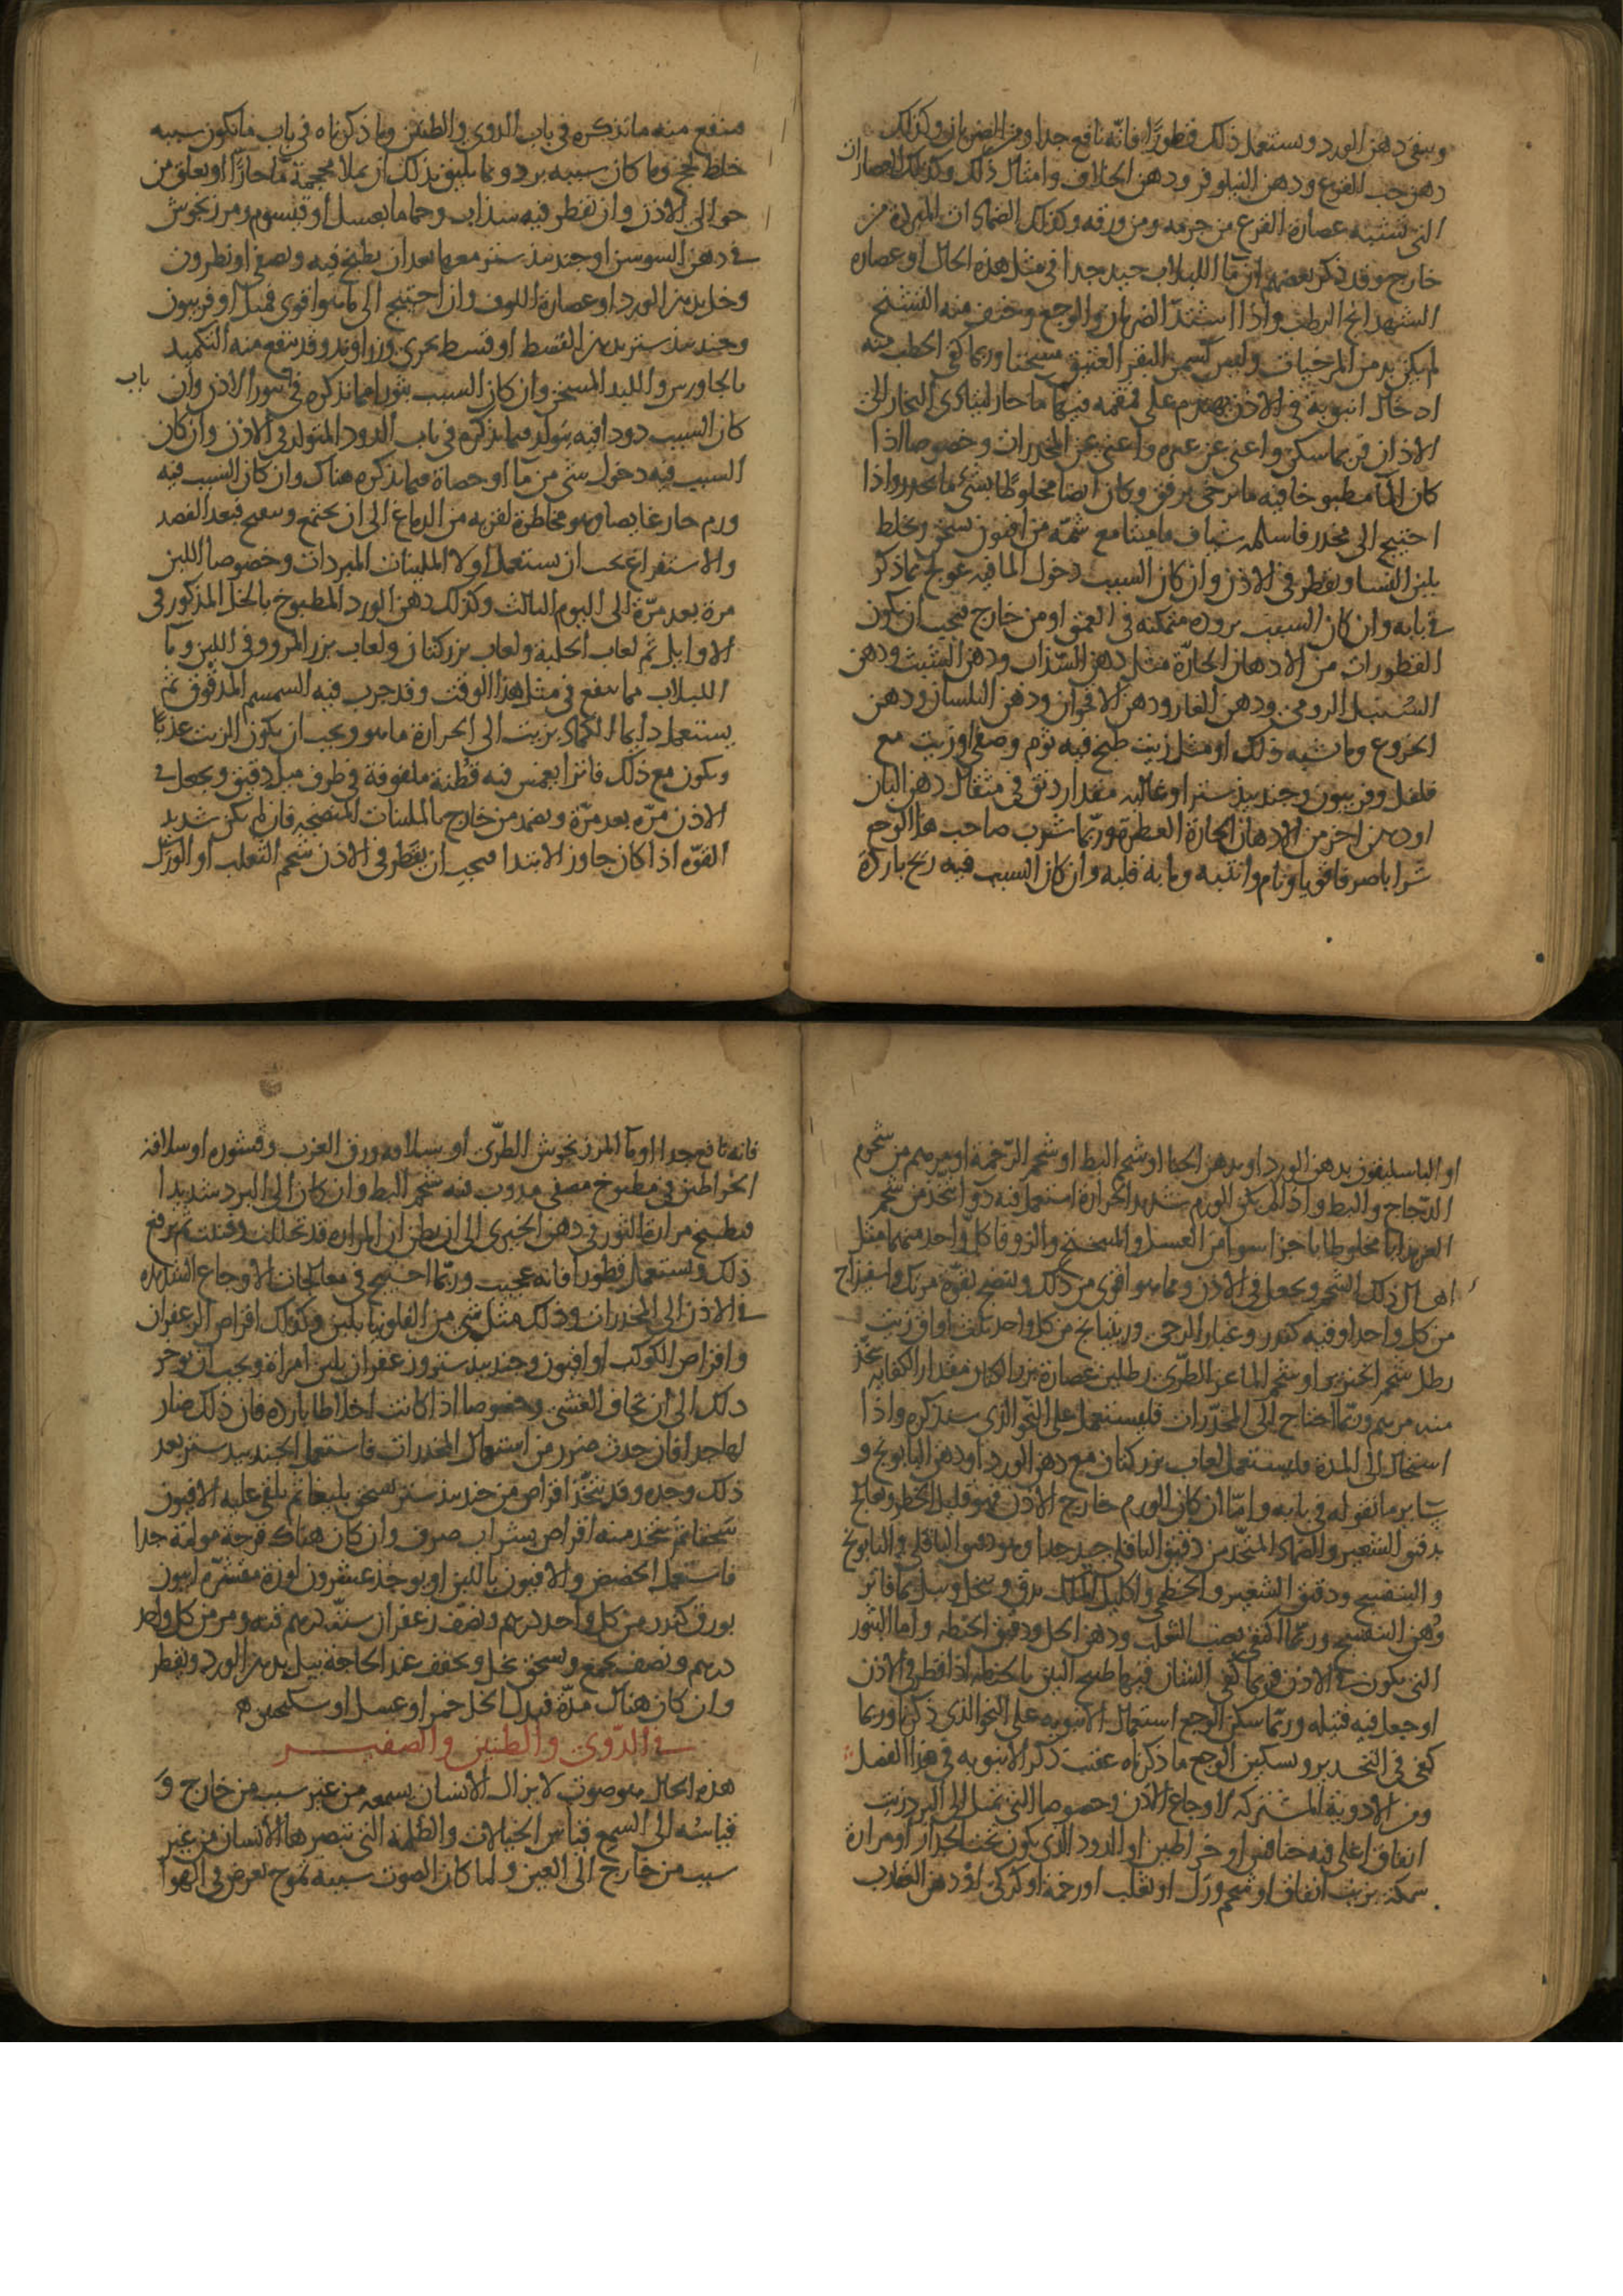 ويبقى دهن الورد ويستعمل ذلك قطورًا فانّه نافع جدا ومن الضربان وكذلك
دهن حب القرع ودهن النيلوفر ودهن الخلاف وامثال ذلك وكذلك العصارات
التى تشبه عصارة القرع من جرمه ومن ورقه وكذلك الضمادات المبردة من
خارج وقد ذكر بعضهم ان ما اللبلاب جيد جدا فى مثل هذه الحال او عصاره
الشهدانج الرطب واذا اشتدّ الضربان والوجع وخيف منه التشنج
لم يكن بد من المرخيات وليس كسمن البقر العتيق مسخنا وربما كفى الخطب فيه
ادخال انبوبة فى الاذن مهندم على قمقمه فيها ما حار ليتادى البخار الى
الاذن فربما سكن واغنى عن غيره واغنى عن المخدرات وخصوصا اذا
كان الما مطبوخا فيه ما يرخى برفق وكان ايضا مخلوطًا بشئ ما يخدر واذا
احتيج الى مخدر فاسلمه شياف ماميثا مع شمّه من افيون يسحق ويخلط
بلبن النسا ويقطر فى الاذن وان كان السبب دخول الما فيه عولج بما ذكر
فى بابه وان كان السبب بروده متمكنه فى العمق او من خارج فيجب ان يكون
القطورات من الادهان الحارّة مثل دهن السّذاب ودهن الشبث ودهن
السنبل الرومى ودهن الغار ودهن الاقحوان ودهن البلسان ودهن
الخروع وما شبه ذلك او مثل زيت طبخ فيه ثوم وصفى او زيت مع
فلفل وفربيون وجندبيدستر او غاليه مقدار دانق فى مثقال دهن البان
او دهن اخر من الادهان الحارة العطرة وربّما شرب صاحب هذا الوجع
شرابا صرفا قويا ونام وانتبه وما به قلبه وان كان السبب فيه ريح باردة
منفع منه ما نذكره فى باب الدوى والطنين وما ذكرناه فى باب ما يكون سببه
خلط لحج وما كان سببه برد ومما يليق بذلك ان يملا محجمة ما حارًّا او يعلق من
حوالى الاذن وان يقطر فيه سذاب وحماما بعسل او قيسوم ومرزنجوش
فى دهن السوسن او جندبيدستر معها بعد ان يطبخ فيه ويصفى او نطرون
وخل بدهن الورد او عصارة اللوف وان احتيج الى ما هو اقوى فمثل اوفربيون
وجندبيدستر بدهن القسط او قسط بحرى وزراوند وقد ينفع منه التكميد
بالجاورس والملح المسخن وان كان السبب بثورا فمما نذكره فى بثورا الاذن وان
باب
كان السبب دودا فيه يتولد فما نذكره فى باب الدود المتولد فى الاذن وان كان
السبب فيه دخول شئ من ما او حصاة فما نذكره هناك وان كان السبب فيه
ورم حار غايصا وهو مخاطرة لقربه من الدماغ الى ان يجتمع ويتقيح فبعد الفصد
والاستفراغ يجب ان يستعمل اولا الملينات المبردات وخصوصا اللبن
مرة بعد مرّة الى اليوم الثالث وكذلك دهن الورد المطبوخ بالخل المذكور فى
الاوايل ثم لعاب الحلبة ولعاب بزركتان ولعاب بزر المرو فى اللبن وما
اللبلاب مما ينفع فى مثل هذا الوقت وقد جرب فيه السمسم المدقوق ثم
يستعمل دايما الكماد بزيت الى الحرارة ما هو ويجب ان يكون الزيت عذبًا
ويكون مع ذلك فاترا يغمس فيه قطنة ملفوفة فى طرف ميل دقيق ويجعل فى
الاذن مرّه بعد مرّة ويضمد من خارج بالملينات المنضجه فان لم يكن شديد
القوّه اذا كان جاوز الابتدا فيجب ان يقطر فى الاذن شحم الثعلب او الورل
او الباسليقون بدهن الورد او بدهن الحنا او شحم البط او شحم الرّخمة او مرهم من شحوم
الدّجاج والبط واذا لم يكن الورم شديد الحرارة استعمل فيه دوا يتخذ من شحم
العنز مخلوطا باجزا سوا من العسل والميبختج والزوفا كل واحد منهما مثل
اهال ذلك الشحم ويجعل فى الاذن ومما هو اقوى من ذلك وينضج بقوة مرتك واسفيذاج
من كل واحد اوقيه كندر وغبار الرحى وريتيانج من كل واحد ثلث اواق زيت
رطل شحم الخنزير او شحم الماعز الطرّى رطلين عصارة بزر الكتان مقدار الكفايه يتخذ
منه مرهم وربّما احتاج الى المخدّرات فليستعمل على النّحو الذى سنذكره واذا
استحال الى المدة فليستعمل لعاب بزركتان مع دهن الورد او دهن البابونج و
ساير ما نقوله فى بابه وامّا ان كان الورم خارج الاذن فهو قليل الخطر ويعالج
بدقيق الشعير والضماد المتّخذ من دقيق الباقلى جيد جدا وهو دقيق الباقلى والبابونج
والبنفسج ودقيق الشعير والخطمى واكليل الملك يدق وينخل ويبل بما فاتر
ودهن البنفسج وربّما اكتفى بعنب الثعلب ودهن الخل ودقيق الحنطه واما البثور
التى يكون فى الاذن فربما كفى الشان فيها طبيخ التين بالحنطه اذا قطر فى الاذن
او جعل فيه فتيله وربّما سكن الوجع استعمال الانبوبه على النحو الذى ذكرنا وربما
كفى فى التخدير وتسكين الوجع ما ذكرناه عقيب ذكر الانبوبه فى هذا الفصل
ومن الادويّة المشتركه لاوجاع الاذن وخصوصا التى تميل الى البرد زيت
انفاق اغلى فيه خنافس او خراطين او الدود الذى يكون تحت الجرار او مرارة
سمكة بزيت انفاق او شحم ورل او ثعلب او رخمة او كركى او دهن العقارب
فانه نافع جدا او ما المرزنجوش الطرّى او سلافه ورق الغرب وقشوره او سلافة
الخراطين فى مطبوخ مصفى مدوب فيه شحم البط وان كان الى البرد شديدا
فيطبخ مرارة الثور فى دهن الخيرى الى ان يظن ان المرارة قد تحللت وفنيت ثم يرفع
ذلك ويستعمل قطورا فانه عجيب وربّما احتيج فى معالجات الاوجاع الشديده
فى الاذن الى المخدرات وذلك مثل شئ من الفلونيا بلبن وكذلك اقراص الزعفران
واقراص الكوكب او افيون وجندبيدستر وزعفران بلبن امراة ويجب ان يوخر
ذلك الى ان يخاف الغشى وخصوصا اذا كانت اخلاطا بارده فان ذلك ضار
لها جدا فان حدث ضرر من استعمال المخدرات فاستعمل الجندبيدستر بعد
ذلك وحده وقد يتخّذ اقراص من جندبيدستر يسحق بليغا ثم يلقى عليه الافيون
سحقا ثم يتخذ منه اقراص بشراب صرف وان كان هناك قرحة مولمة جدا
فاستعمل الحضض والافيون باللبن او يوخذ عشرون لوزة مقشرة افيون
بورق كندر من كل واحد درهم ونصف زعفران ستة درهم قنه ومر من كل واحد
درهم ونصف يجمع ويسحق بخل ويجفف عند الحاجة يبل بدهن الورد ويقطر
وان كان هناك مدّة فبدل الخل خمر او عسل او سكنجبين
فى الدّوى والطنين والصفير
هذه الحال هو صوت لا يزال الانسان يسمعه من غير سبب من خارج و
قياسُه الى السمع قياس الخيالات والظلمة التى تبصرها الانسان من غير
سبب من خارج الى العين ولما كان الصوت سببه تموج يعرض فى الهوا